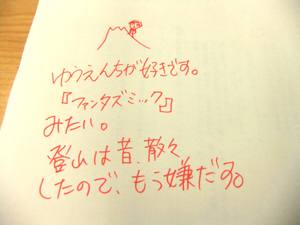 ゆうえんちが好きです。
『ファンタズミック』
みたい。
登山は昔、散々
したので、もう嫌だす。